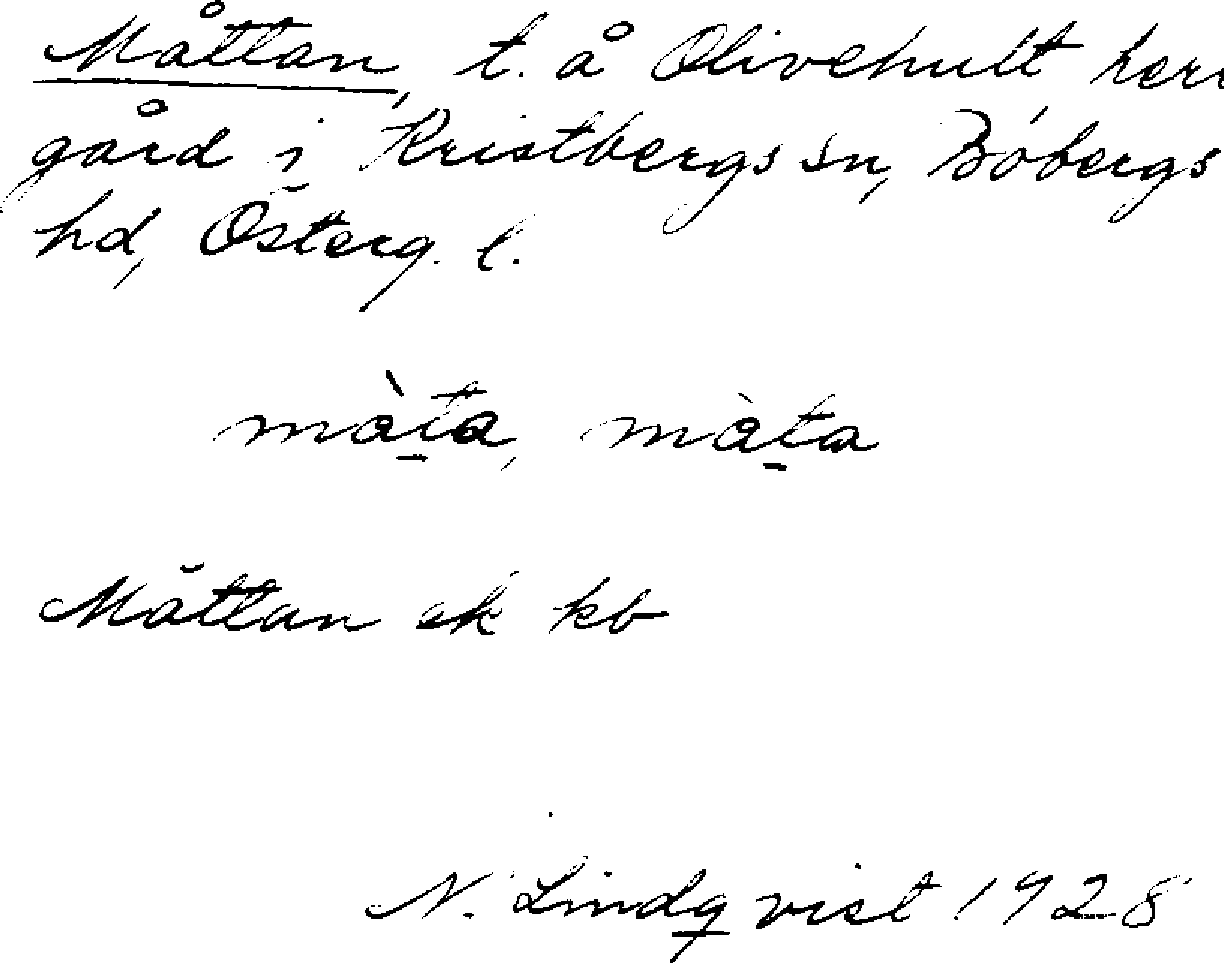 Måttan, t. å Olivehult herr
gård i Kristbergs sn, Bobergs
hd, Österg. l.
mà̱ta, mà̱ta
Måttan ek kb
N. Lindqvist 1928